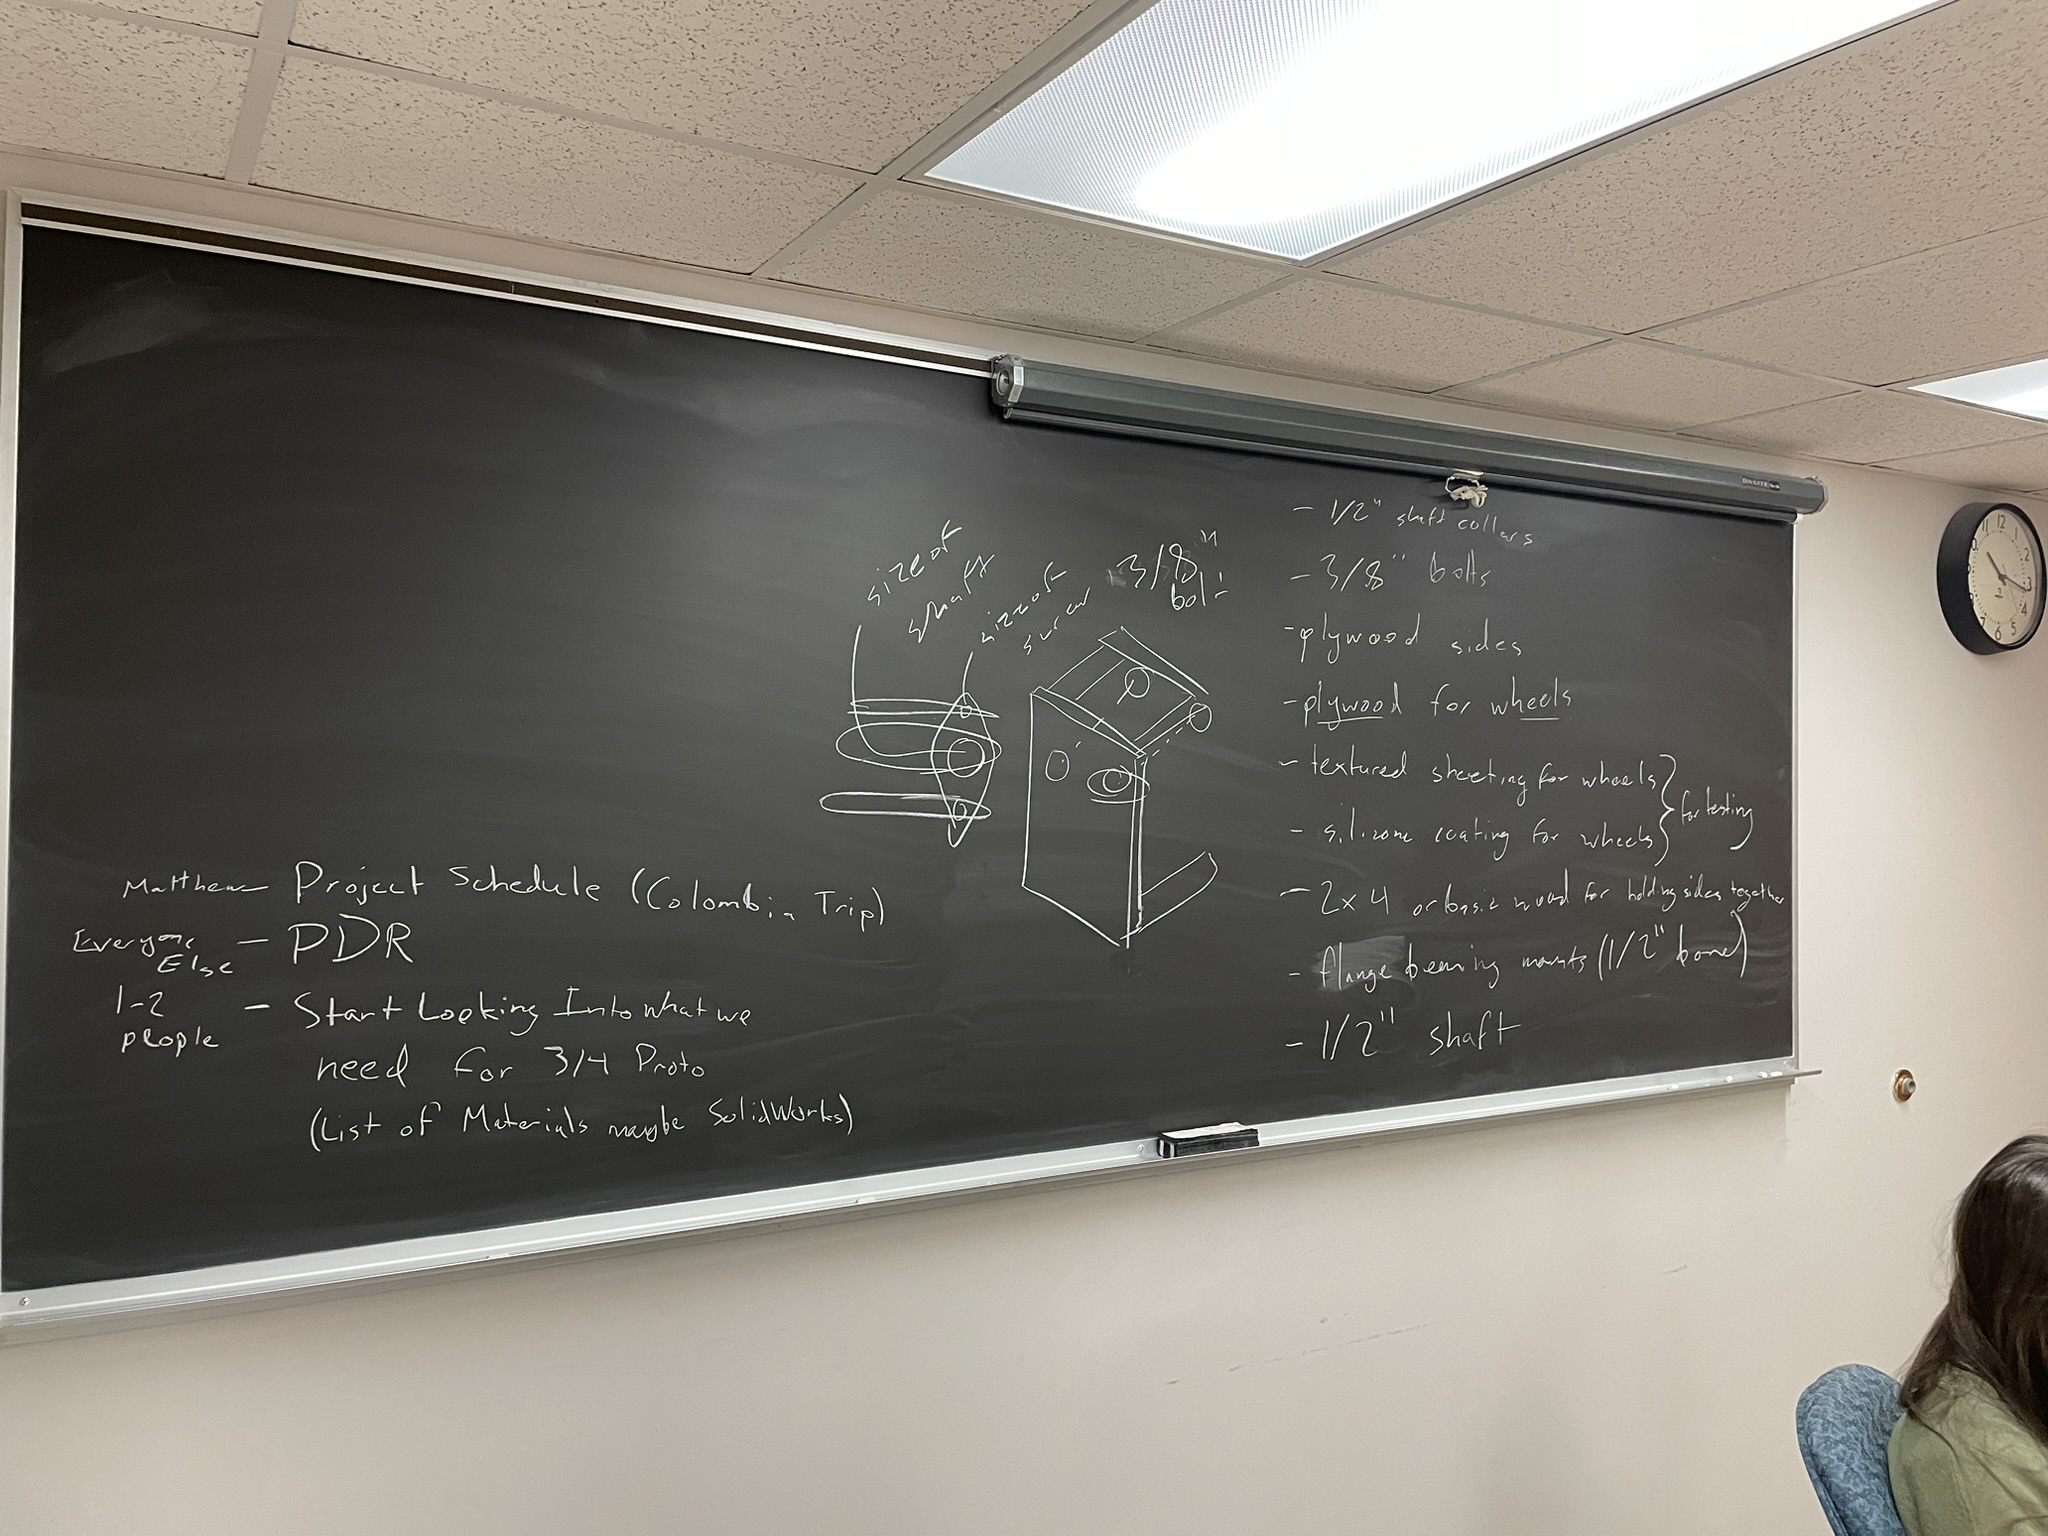 Matthew - Project Schedule (Colombia Trip)
Everyone Else - PDR
1-2 people - Start Looking Into what we
need for 3/4 Proto
(List of Materials maybe SolidWorks)
size of
shaft
size of
screw
3/8"
bolt
- 1/2" shaft collars
- 3/8" bolts
- plywood sides
- plywood for wheels
- textured sheeting for wheels
- silicone coating for wheels } for testing
- 2x4 or basic wood for holding sides together
- flange bearing mounts (1/2" bore)
- 1/2" shaft
12
1
2
3
4
5
6
7
11